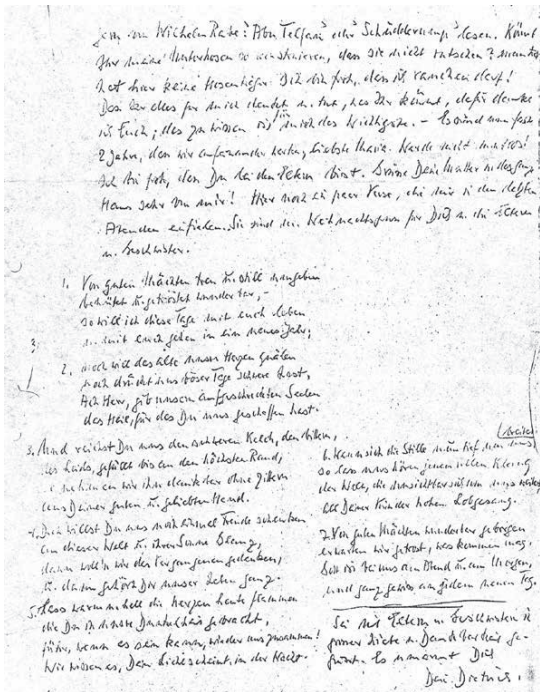 gern von Wilhelm Raabe: „Abu Telfan" oder „Schüdderump" lesen. Könnt
Ihr meine Unterhosen so konstruieren, daß sie nicht rutschen? man
hat hier keine Hosenträger. Ich bin froh, daß ich rauchen darf!
Daß Ihr alles für mich denkt u. tut, was Ihr könnt, dafür danke
ich Euch; das zu wissen ist für mich das Wichtigste. – Es sind nun fast
2 Jahre, daß wir aufeinander warten, liebste Maria. Werde nicht mutlos!
Ich bin froh, daß Du bei den Eltern bist. Grüße Deine Mutter u. das ganze
Haus sehr von mir! Hier noch ein paar Verse, die mir in den letzten
Abenden einfielen. Sie sind der Weihnachtsgruß für Dich u. die Eltern
u. Geschwister.
1. Von guten Mächten treu u. still umgeben
behütet u. getröstet wunderbar, –
so will ich diese Tage mit euch leben
u. mit euch gehen in ein neues Jahr;
2. noch will das alte unsre Herzen quälen
noch drückt uns böser Tage schwere Last,
Ach Herr, gib unsern aufgescheuchten Seelen
das Heil, für das Du uns geschaffen hast.
3. Und reichst Du uns den schweren Kelch, den bittern,
des Leids, gefüllt bis an den höchsten Rand,
so nehmen wir ihn dankbar ohne Zittern
aus Deiner guten u. geliebten Hand.
4. Doch willst Du uns noch einmal Freude schenken
an dieser Welt u. ihrer Sonne Glanz,
dann woll'n wir des Vergangenen gedenken,
u. dann gehört Dir unser Leben ganz.
5. Lass warm u. hell die Kerzen heute flammen
die Du in unsre Dunkelheit gebracht,
führ, wenn es sein kann, wieder uns zusammen!
Wir wissen es, Dein Licht scheint in der Nacht.
6. Wenn sich die Stille nun tief um uns breitet
so lass uns hören jenen vollen Klang
der Welt, die unsichtbar sich um uns weitet,
all Deiner Kinder hohen Lobgesang.
7. Von guten Mächten wunderbar geborgen
erwarten wir getrost, was kommen mag.
Gott ist bei uns am Abend u. am Morgen,
und ganz gewiß an jedem neuen Tag.
Sei mit Eltern u. Geschwistern in
großer Liebe u. Dankbarkeit ge-
grüßt. Es umarmt Dich
Dein Dietrich.